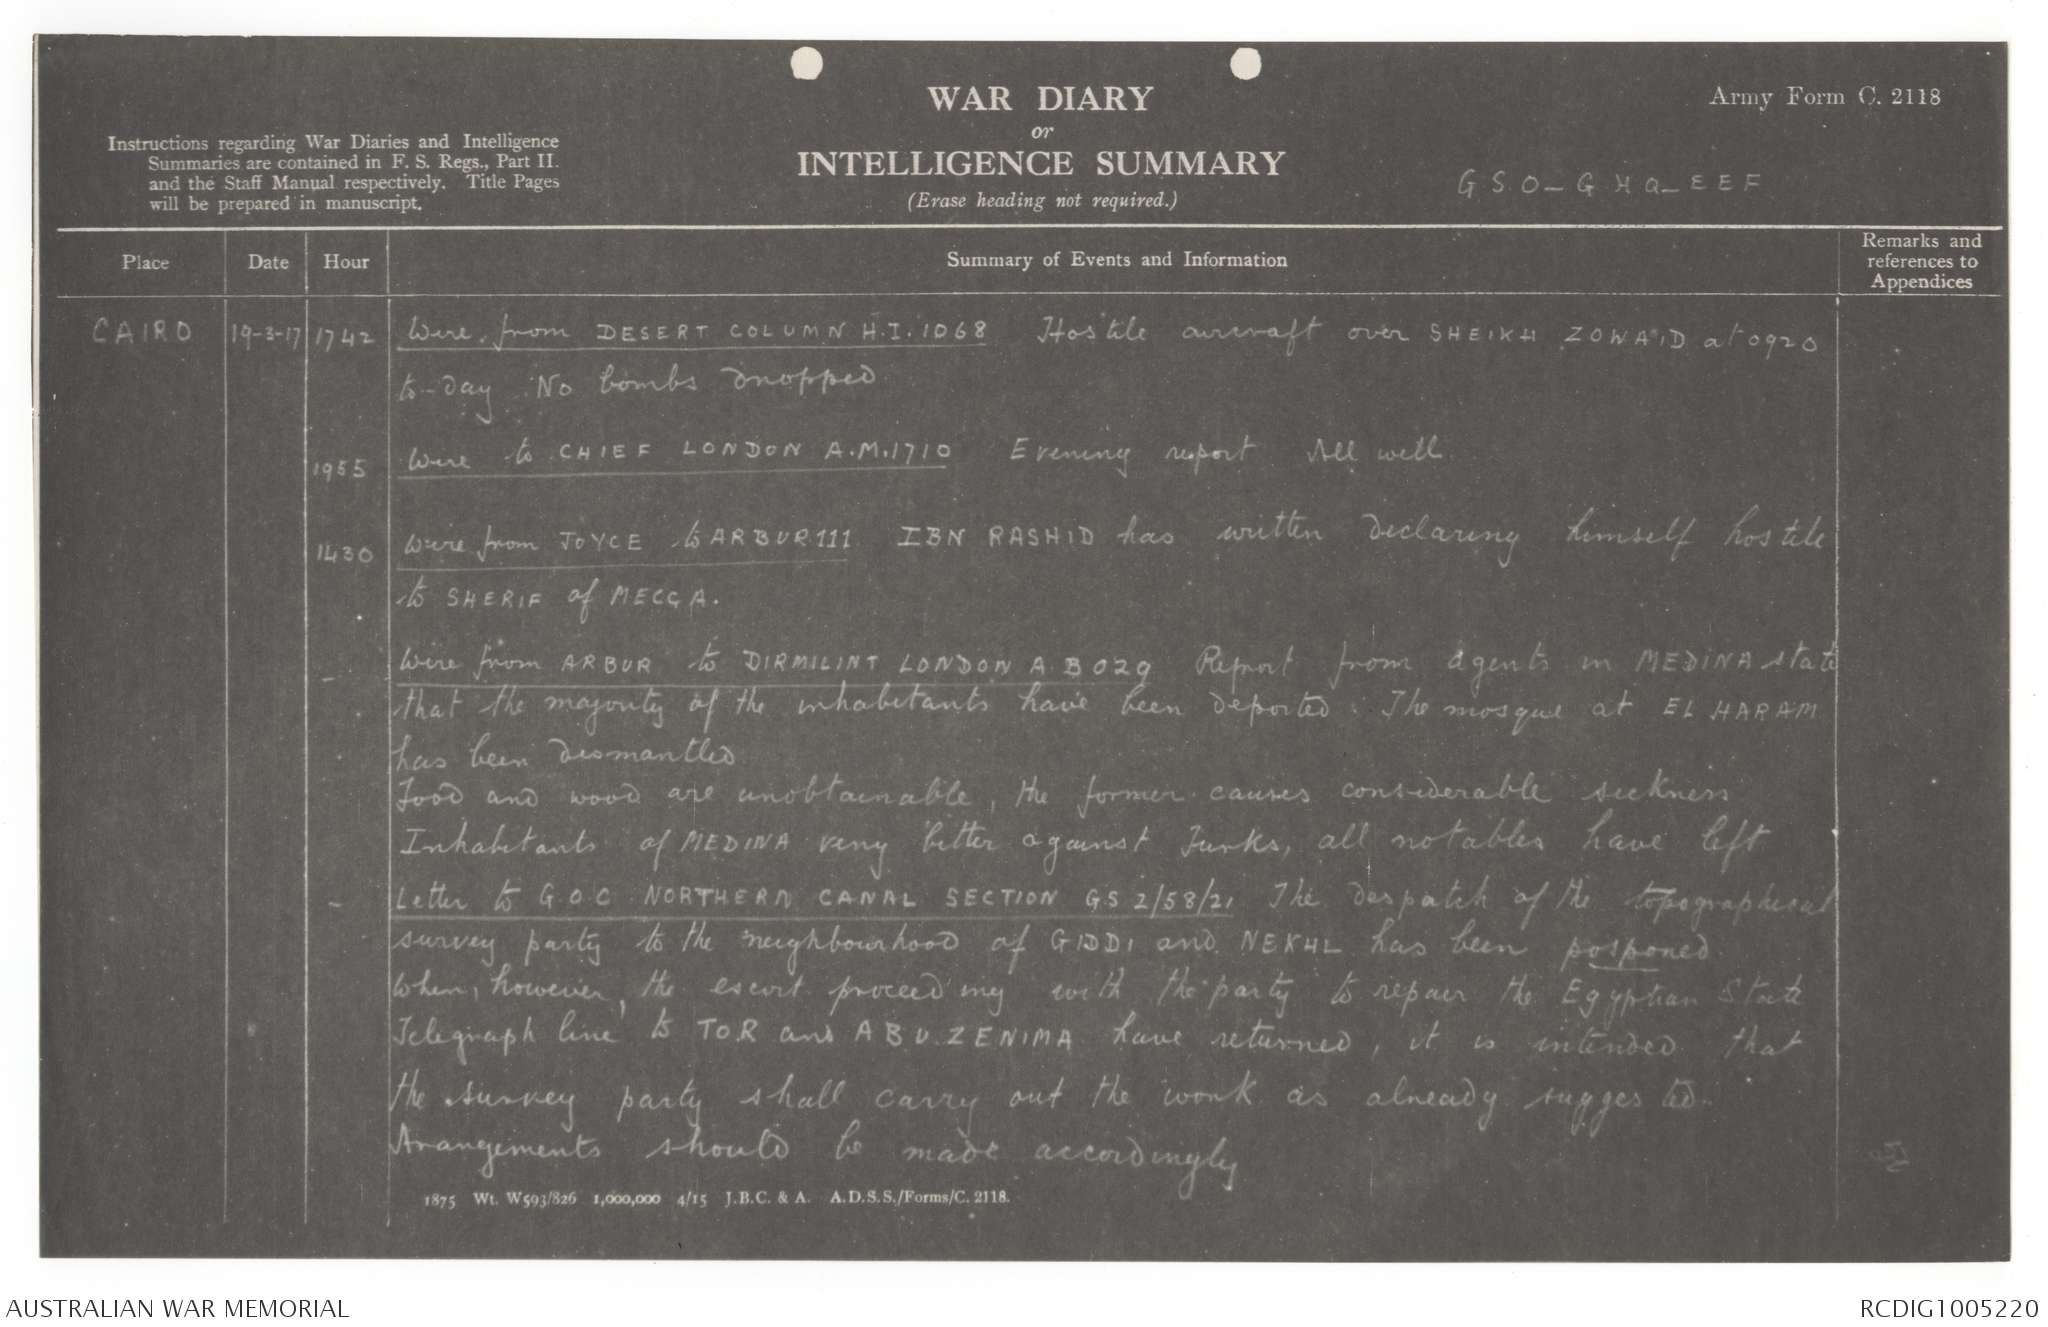 WAR DIARY
or
INTELLIGENCE SUMMARY
(Erase heading not required.)
Army Form C. 2118
Instructions regarding War Diaries and Intelligence
Summaries are contained in F. S. Regs., Part II.
and the Staff Manual respectively. Title Pages
will be prepared in manuscript.
G S O - G H Q - E E F
Place Date Hour Summary of Events and Information Remarks and
references to
Appendices
CAIRO 19-3-17 1742 Wire from DESERT COLUMN H.I.1068 Hostile aircraft over SHEIKH ZOWAID at 0920
to-day. No bombs dropped
1955 Wire to CHIEF LONDON A.M.1710 Evening report All well.
1430 Wire from JOYCE to ARBUR 111 IBN RASHID has written declaring himself hostile
to SHERIF of MECCA.
- Wire from ARBUR to DIRMILINT LONDON A.B 029 Report from agents in MEDINA state
that the majority of the inhabitants have been deported. The mosque at EL HARAM
has been dismantled
Food and wood are unobtainable, the former causes considerable sickness
Inhabitants of MEDINA very bitter against Turks, all notables have left
- Letter to G.O.C NORTHERN CANAL SECTION GS 2/58/21 The despatch of the topographical
survey party to the neighbourhood of GIDDI and NEKHL has been posponed.
When, however, the escort proceeding with the party to repair the Egyptian State
Telegraph line to TOR and ABU ZENIMA have returned, it is intended that
the survey party shall carry out the work as already suggested.
Arangements should be made accordingly
1875 Wt. W593/826 1,000,000 4/15 J.B.C. & A. A.D.S.S./Forms/C. 2118.
AUSTRALIAN WAR MEMORIAL
RCDIG1005220